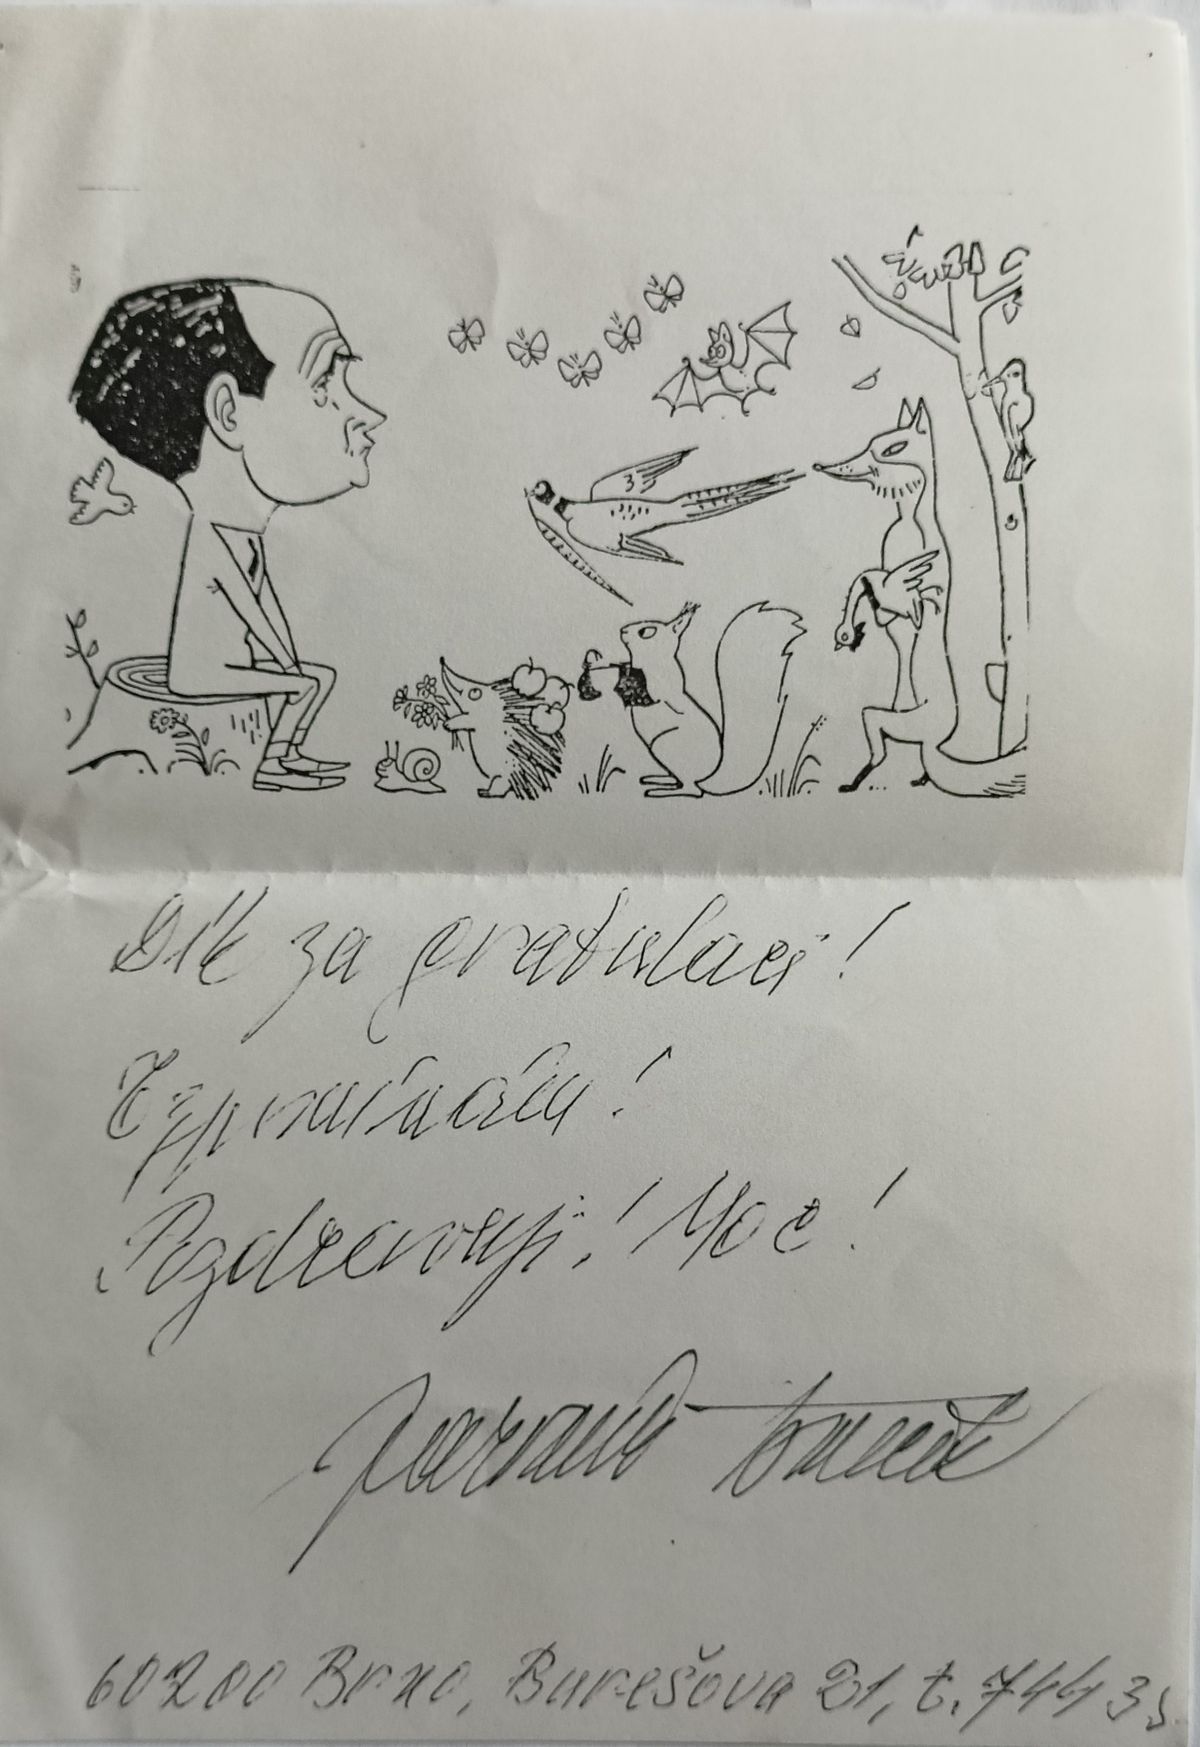 Dík za gratulaci!
Vzpomínám!
Pozdravuji! Moc!
60200 Brno, Burešova 21, t. 744